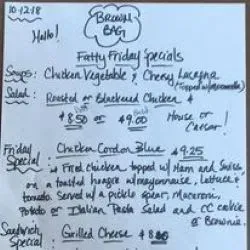 10-12-18
BROWN
BAG
Hello!
Fatty Friday Specials
Soups: Chicken Vegetable & Cheesy Lasagna
(Topped w/
Salad: Roasted or Blackened Chicken &
$8.50 or $9.00 House or
Caesar!
Friday Special: Chicken Cordon Blue $9.25
Fried Chicken topped w/ Ham and Swiss,
on a toasted hoagie w/mayonnaise, Lettuce &
tomato. Served w/ a pickle spear, Macaroni,
Potato or Italian Pasta Salad and CC cookie
or Brownie.
Sandwich Special: Grilled Cheese